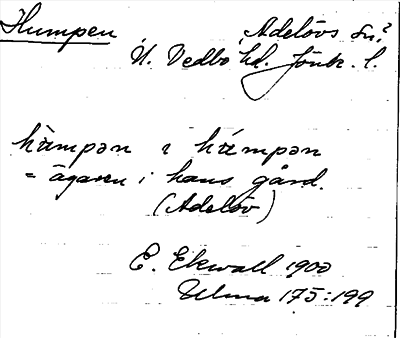 Humpen Adelövs sn?
N. Vedbo hd. Jönk. l.
hùmpən ɩ húmpən
= ägaren i hans gård.
(Adelöv)
E. Ekwall 1900
Ulma 175:199